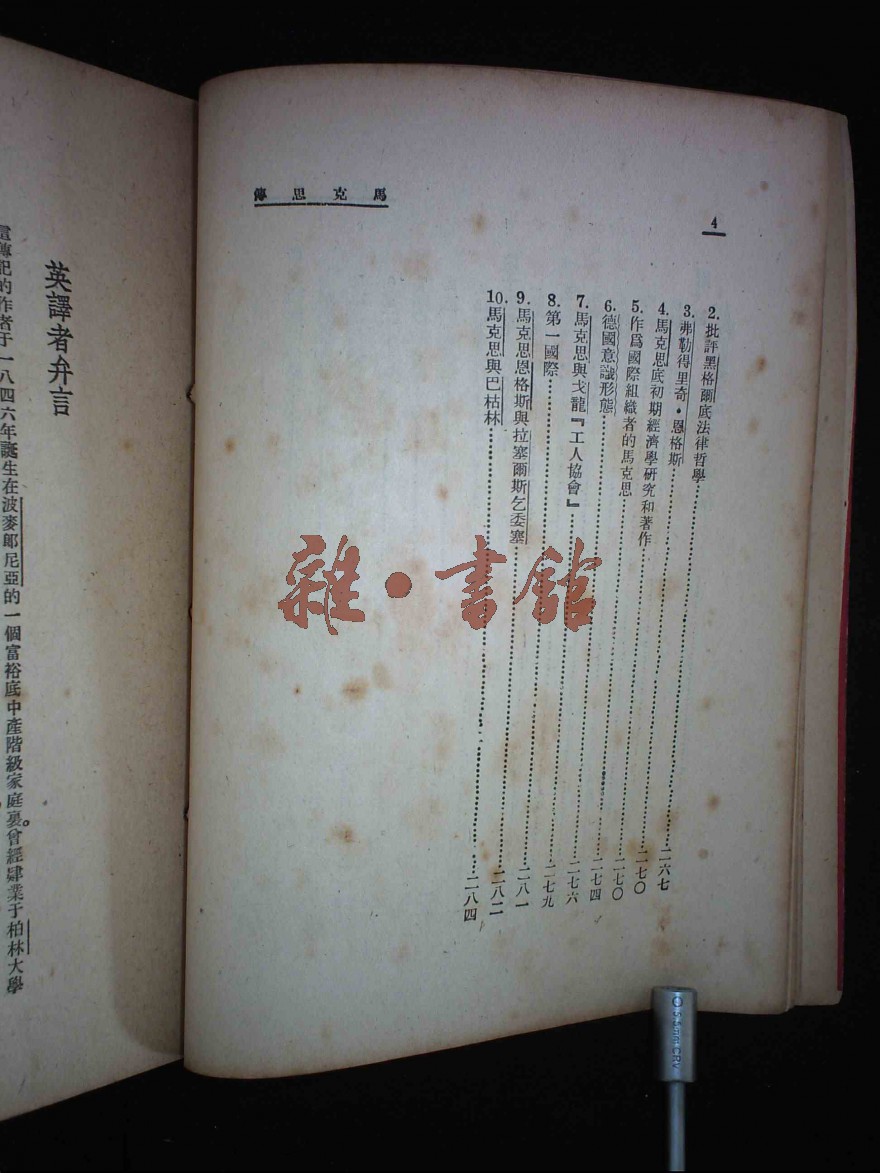 馬克思傳
4
2. 批評黑格爾底法律哲學……二六七
3. 弗勒得里奇·恩格斯……二七〇
4. 馬克思底初期經濟學研究和著作……二七〇
5. 作爲國際組織者的馬克思……二七四
6. 德國意識形態……二七六
7. 馬克思與戈龍『工人協會』……二七九
8. 第一國際……二八一
9. 馬克思恩格斯與拉塞爾斯乞委塞……二八二
10. 馬克思與巴枯林……二八四
英譯者弁言
傳記的作者于一八四六年誕生在波麥郎尼亞的一個富裕底中產階級家庭裏。曾經肄業于柏林大學
雜·書館